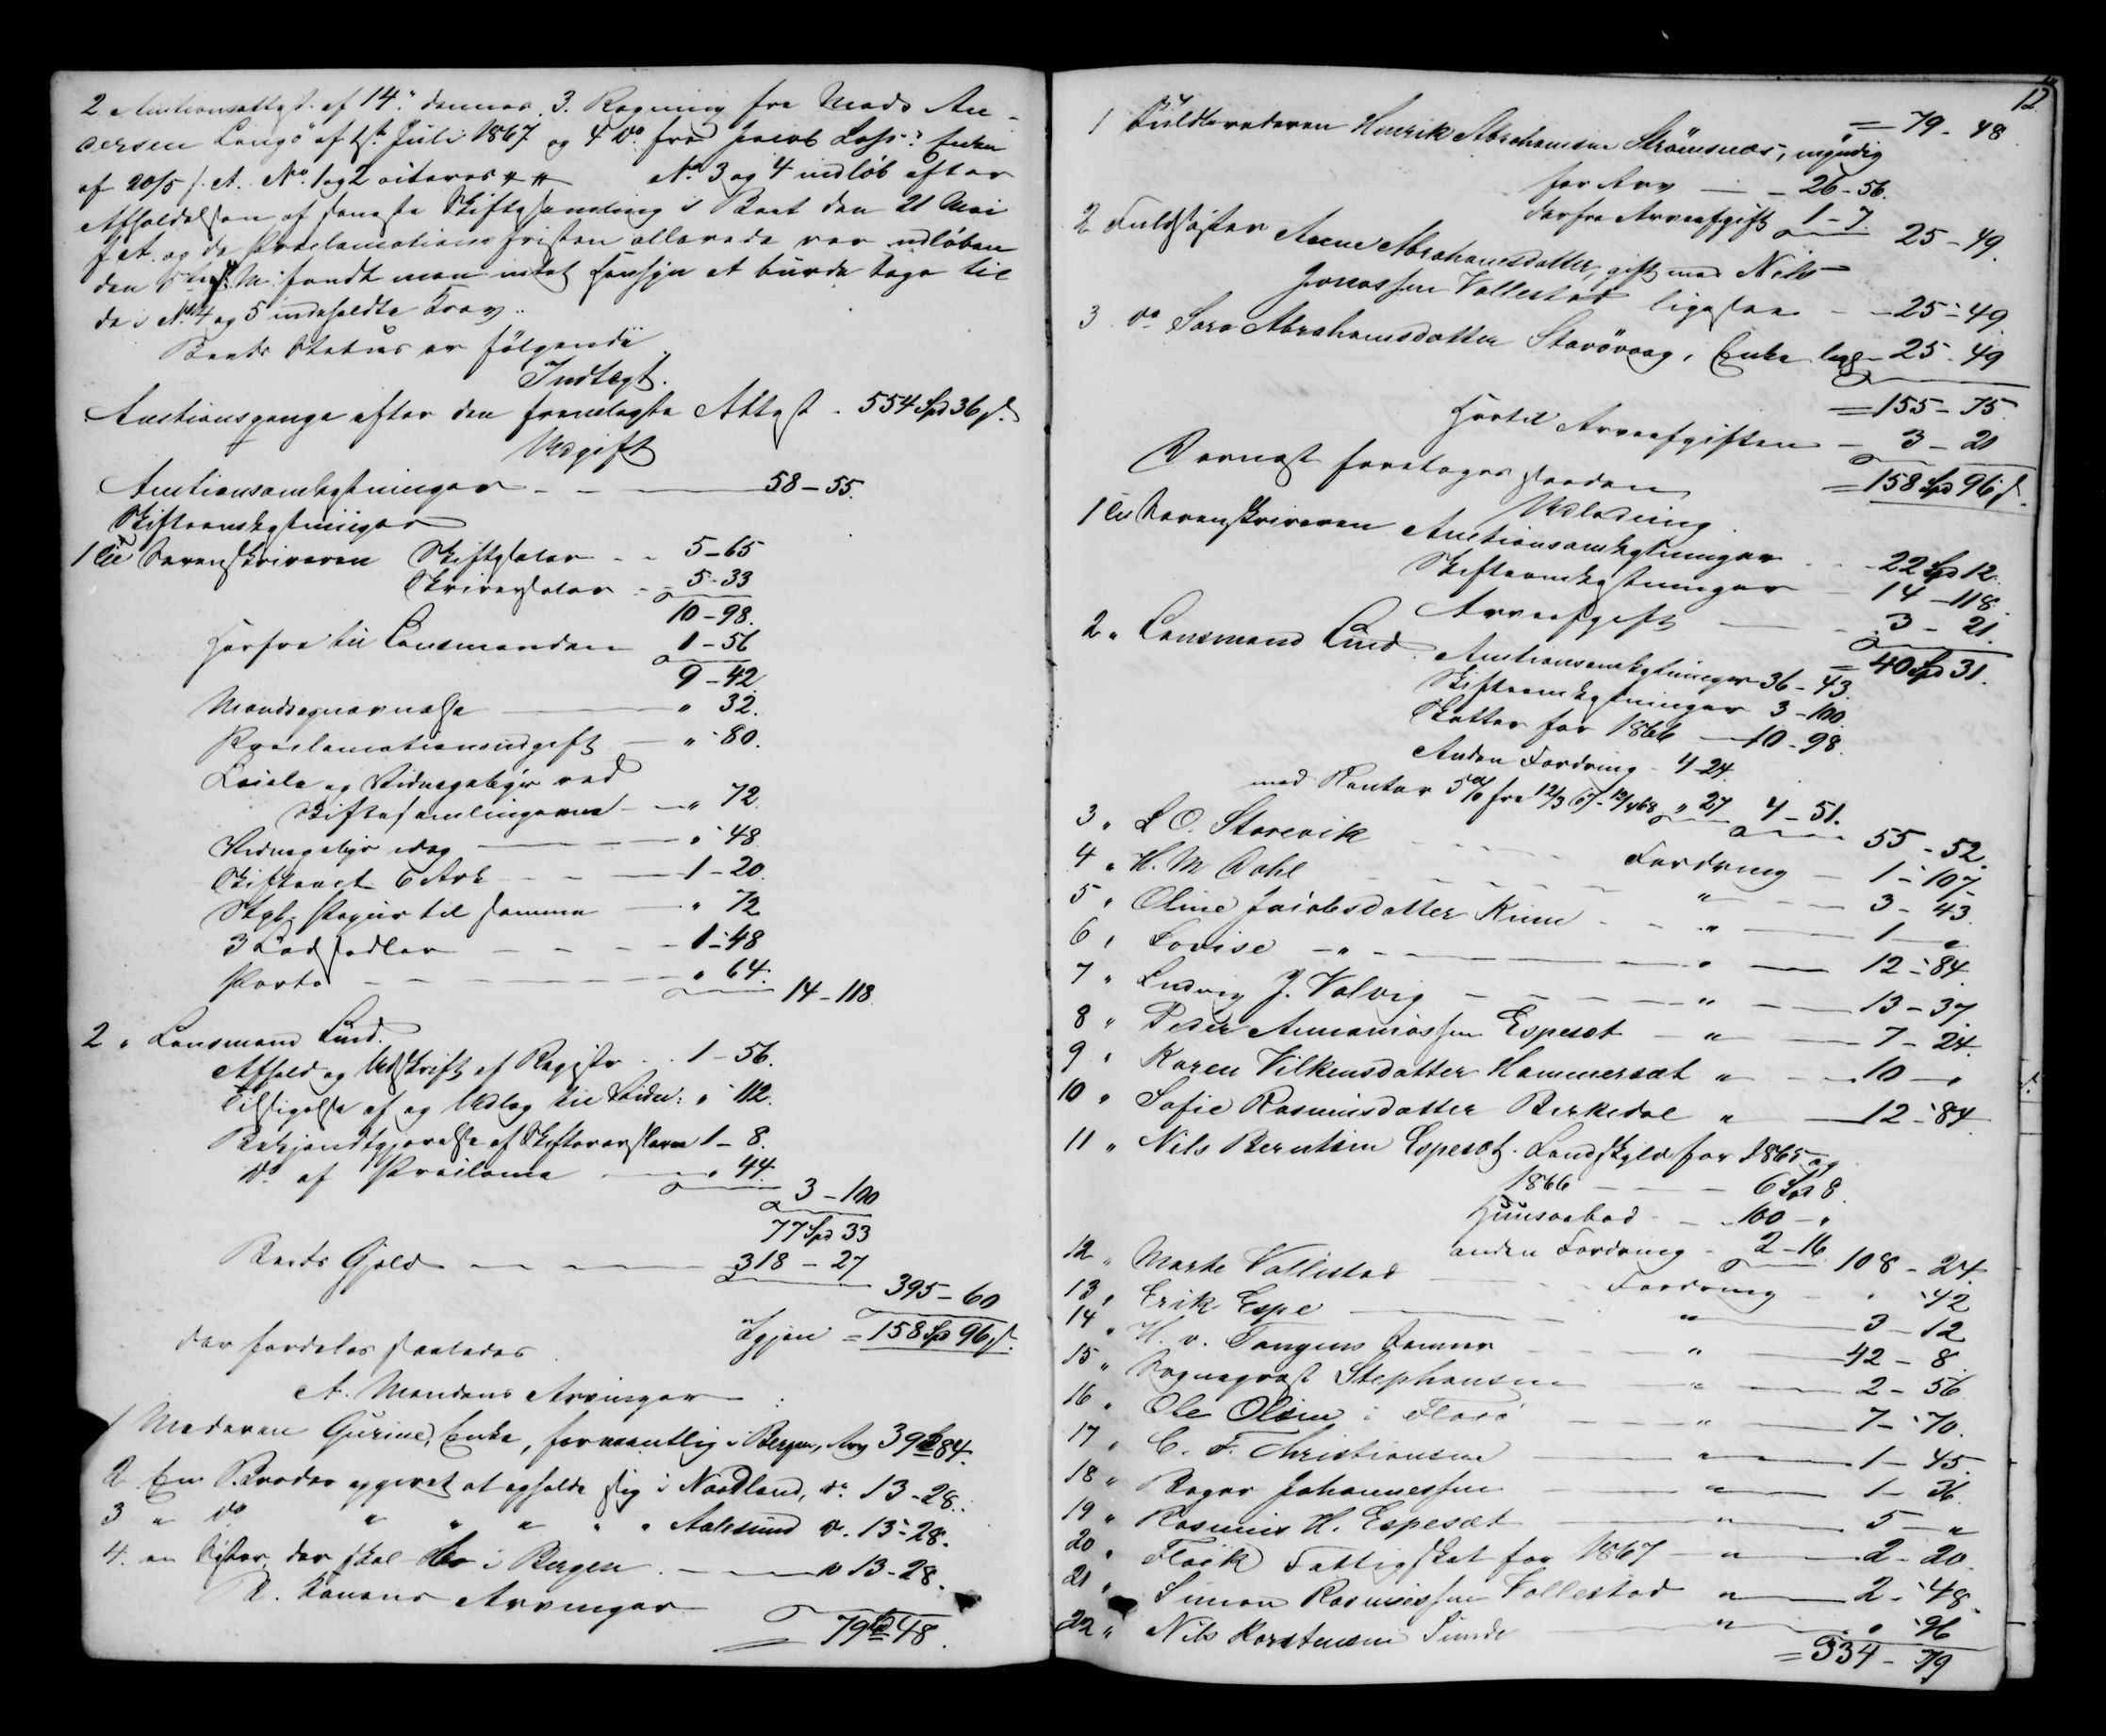 2 Auctionsattest af 14de dennes. 3. Regning fra Mads An-
dersen Langö af 1ste Juli 1867 og 4 Do fra Jacob Enke
af 20/5 f. A. No 1 og 2 No 3 og 4 indløb efter
Afholdelsen af seneste Skiftesamling i Boet den 21 Mai
f A. og da Proclamationsfristen allerede var udløben
den fandt man intet Hensyn at burde tage til
de i No 4 og 5 indeholdte Krav.
Boets Status er følgende
Indtægt.
Auctionspenge efter den fremlagte Attest . 554 Spd 36 s.
Udgift
Auctionsomkostninger - - 58-55.
Skifteomkostninger
1 til Sorenskriveren Skiftesalær - - 5-65
Skriversalær - 5-33
10-98.
Herfra til Lensmanden 1-56
9-42
Mandsopnævnelse " 32.
Proclamationsudgift - " 80.
Locale og Vidnegebyr ved
Skiftesamlingerne - " 72
Vidnegebyr idag - " 48
Skifteact 6 Ark - - 1-20.
Stpl. Papir til samme - " 72
3 Lodsedler - - - 1-48
Porto - - - " 64.
14-118.
2 " Lensmand Lind.
Afhold og Udskrift af Registr. . . 1-56.
Tilsigelse af og Udlæg til Vidn: " 112.
Bekjendtgjørelse af Skifteværslerne 1-8.
Do af Proclama " 44.
3-100
77 Spd 33
Boets Gjæld - - - 318-27
395-60
Igjen = 158 Spd 96 s.
der fordeles saaledes
A. Mandens Arvinger :
1 Moderen Gurine, Enke, formentlig i Bergen, Arv 39 84.
2 En Broder opgivet at opholde sig i Nordland, do 13-28.
3 " do " " " " " Aalesund do. 13-28.
4. en Søster, der skal bo i Bergen . - " 13-28.
B. Konens Arvinger
79 Spd 48.
12
= 79-48
1 Fuldbroderen Henrik Abrahamsen Strömsnæs, myndig
faar Arv - - 26-56.
derfra Arveafgift 1-7. 25-49.
2 Fuldsøster Anne Abrahamsdatter, gift med Nils
Jonassen Vallestad ligesaa - - 25-49.
3 do Sara Abrahamsdatter Storövaag, Enke ligs- 25-49
= 155-75.
Hertil Arveafgiften - 3-21
= 158 Spd 96 s.
Dernæst foretoges saadan
Udlodning.
1 til Sorenskriveren Auctionsomkostninger - - 22 Spd 12.
Skifteomkostninger - 14-118.
Arveafgift - - 3-21.
= 40 Spd 31.
2 " Lensmand Lind. Auctionsomkostninger 36-43.
Skifteomkostninger 3-100.
Skatter for 1866 - 10-98.
Anden Fordring - 4-24
med Renter 5 % fra 12/3 67 - 12/4 68 " 27 4-51.
55-52.
3 " L O. Starevik - - - Fordring - 1-107.
4 " H. M Dahl - - - " - - 3-43.
5 " Oline Jacobsdatter Rinn - - " - 1-"
6 " Lovise - " - " - 12-84.
7 " Ludvig J. Valvig - - - " - 13-37
8 " Peder Ananiassen Espeset - " - 7-24.
9 " Karen Vilkensdatter Hammerset " - 10-"
10 " Sofie Rasmusdatter Birkedal " - 12-84
11 " Nils Berntsen Espeset. Landskyld for 1865 og
1866 - - - 6 Spd 8.
Huusaabod - - 100-"
anden Fordring - 2-16 108-24.
12 " Marthe Vallestad - - - Fordring - " 42
13 " Erik Espe - - - " - 3-12
14 " H. v. Tangens Sønner - - " - 42-8.
15 " Ragnegvast Stephansen - " - 2-56
16 " Ole Olsen i Florö - - " - 7-70.
17 " C. F. Christiansen - " - 1-45.
18 " Roger Johannessen - " - 1-36.
19 " Rasmus H. Espeset - " - 5-"
20 " Fløik Fattigskat for 1867 - " - 2-20
21 " Simon Rasmussen Vallestad " - 2-48.
22 " Nils Karstensen Sunde " " 96
= 334-79